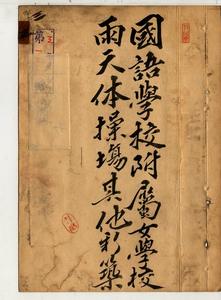 國語學校附屬女學校
雨天体操場其他新築
第